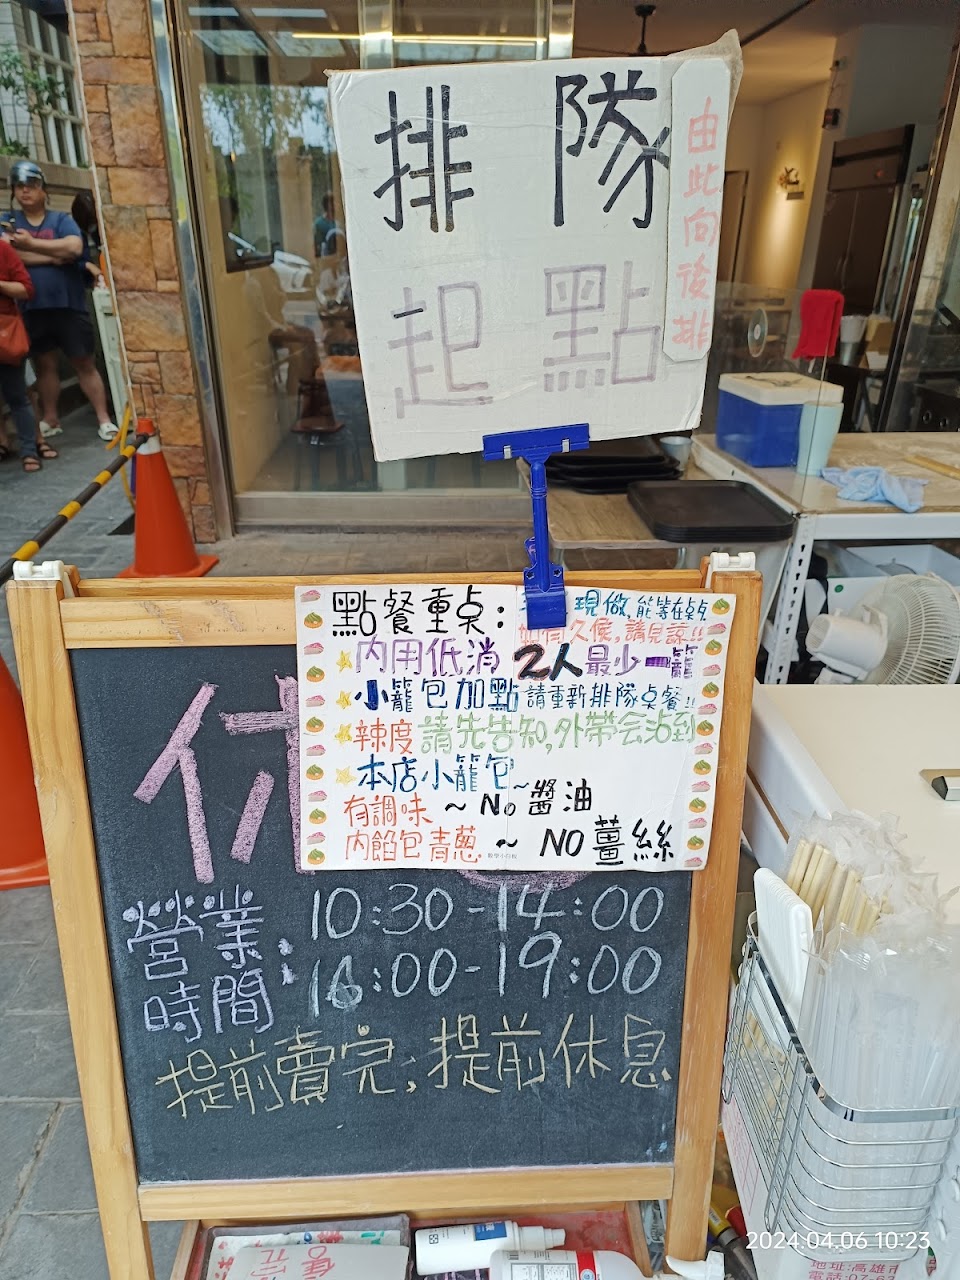 排隊
起點
由此向後排
點餐重點:
現做,能等在桌点
如有久候,請見諒!!
內用低消 2人最少一籠
小籠包加點請重新排隊桌餐!!
辣度請先告知,外帶会沾到
本店小籠包~
有調味 ~ No 醬油
內餡包青蔥 ~ NO 薑絲
休
營業時間:
10:30-14:00
16:00-19:00
提前賣完,提前休息
2024.04.06 10:23
地址:高雄市
電話:07-